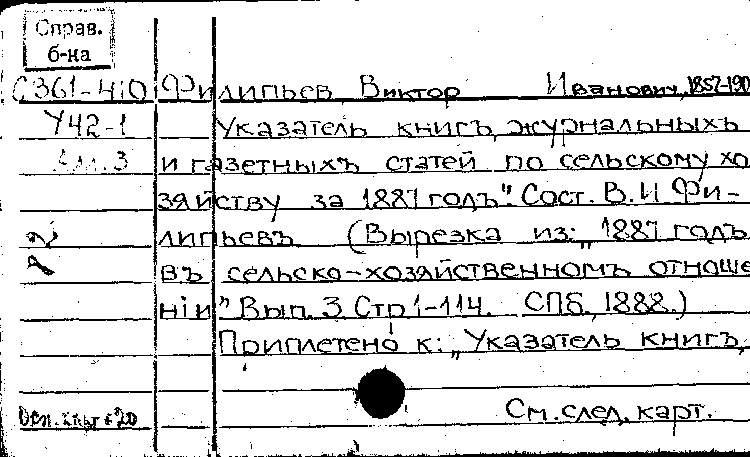 Справ.
б-на
С361-410 Филипьев, Виктор Иванович, 1857-190
У42-1 Указатель книгъ, журнальныхъ
и газетныхъ статей по сельскому хо
зяйству за 1887 годъ". Сост. В. И Фи-
липьевъ (Вырезка из: „1887 годъ
въ сельско-хозяйственномъ отноше
нiи" Вып. 3 Стр 1-114. СПб, 1888.)
Приплетено к: „Указатель книгъ,
См. след. карт.